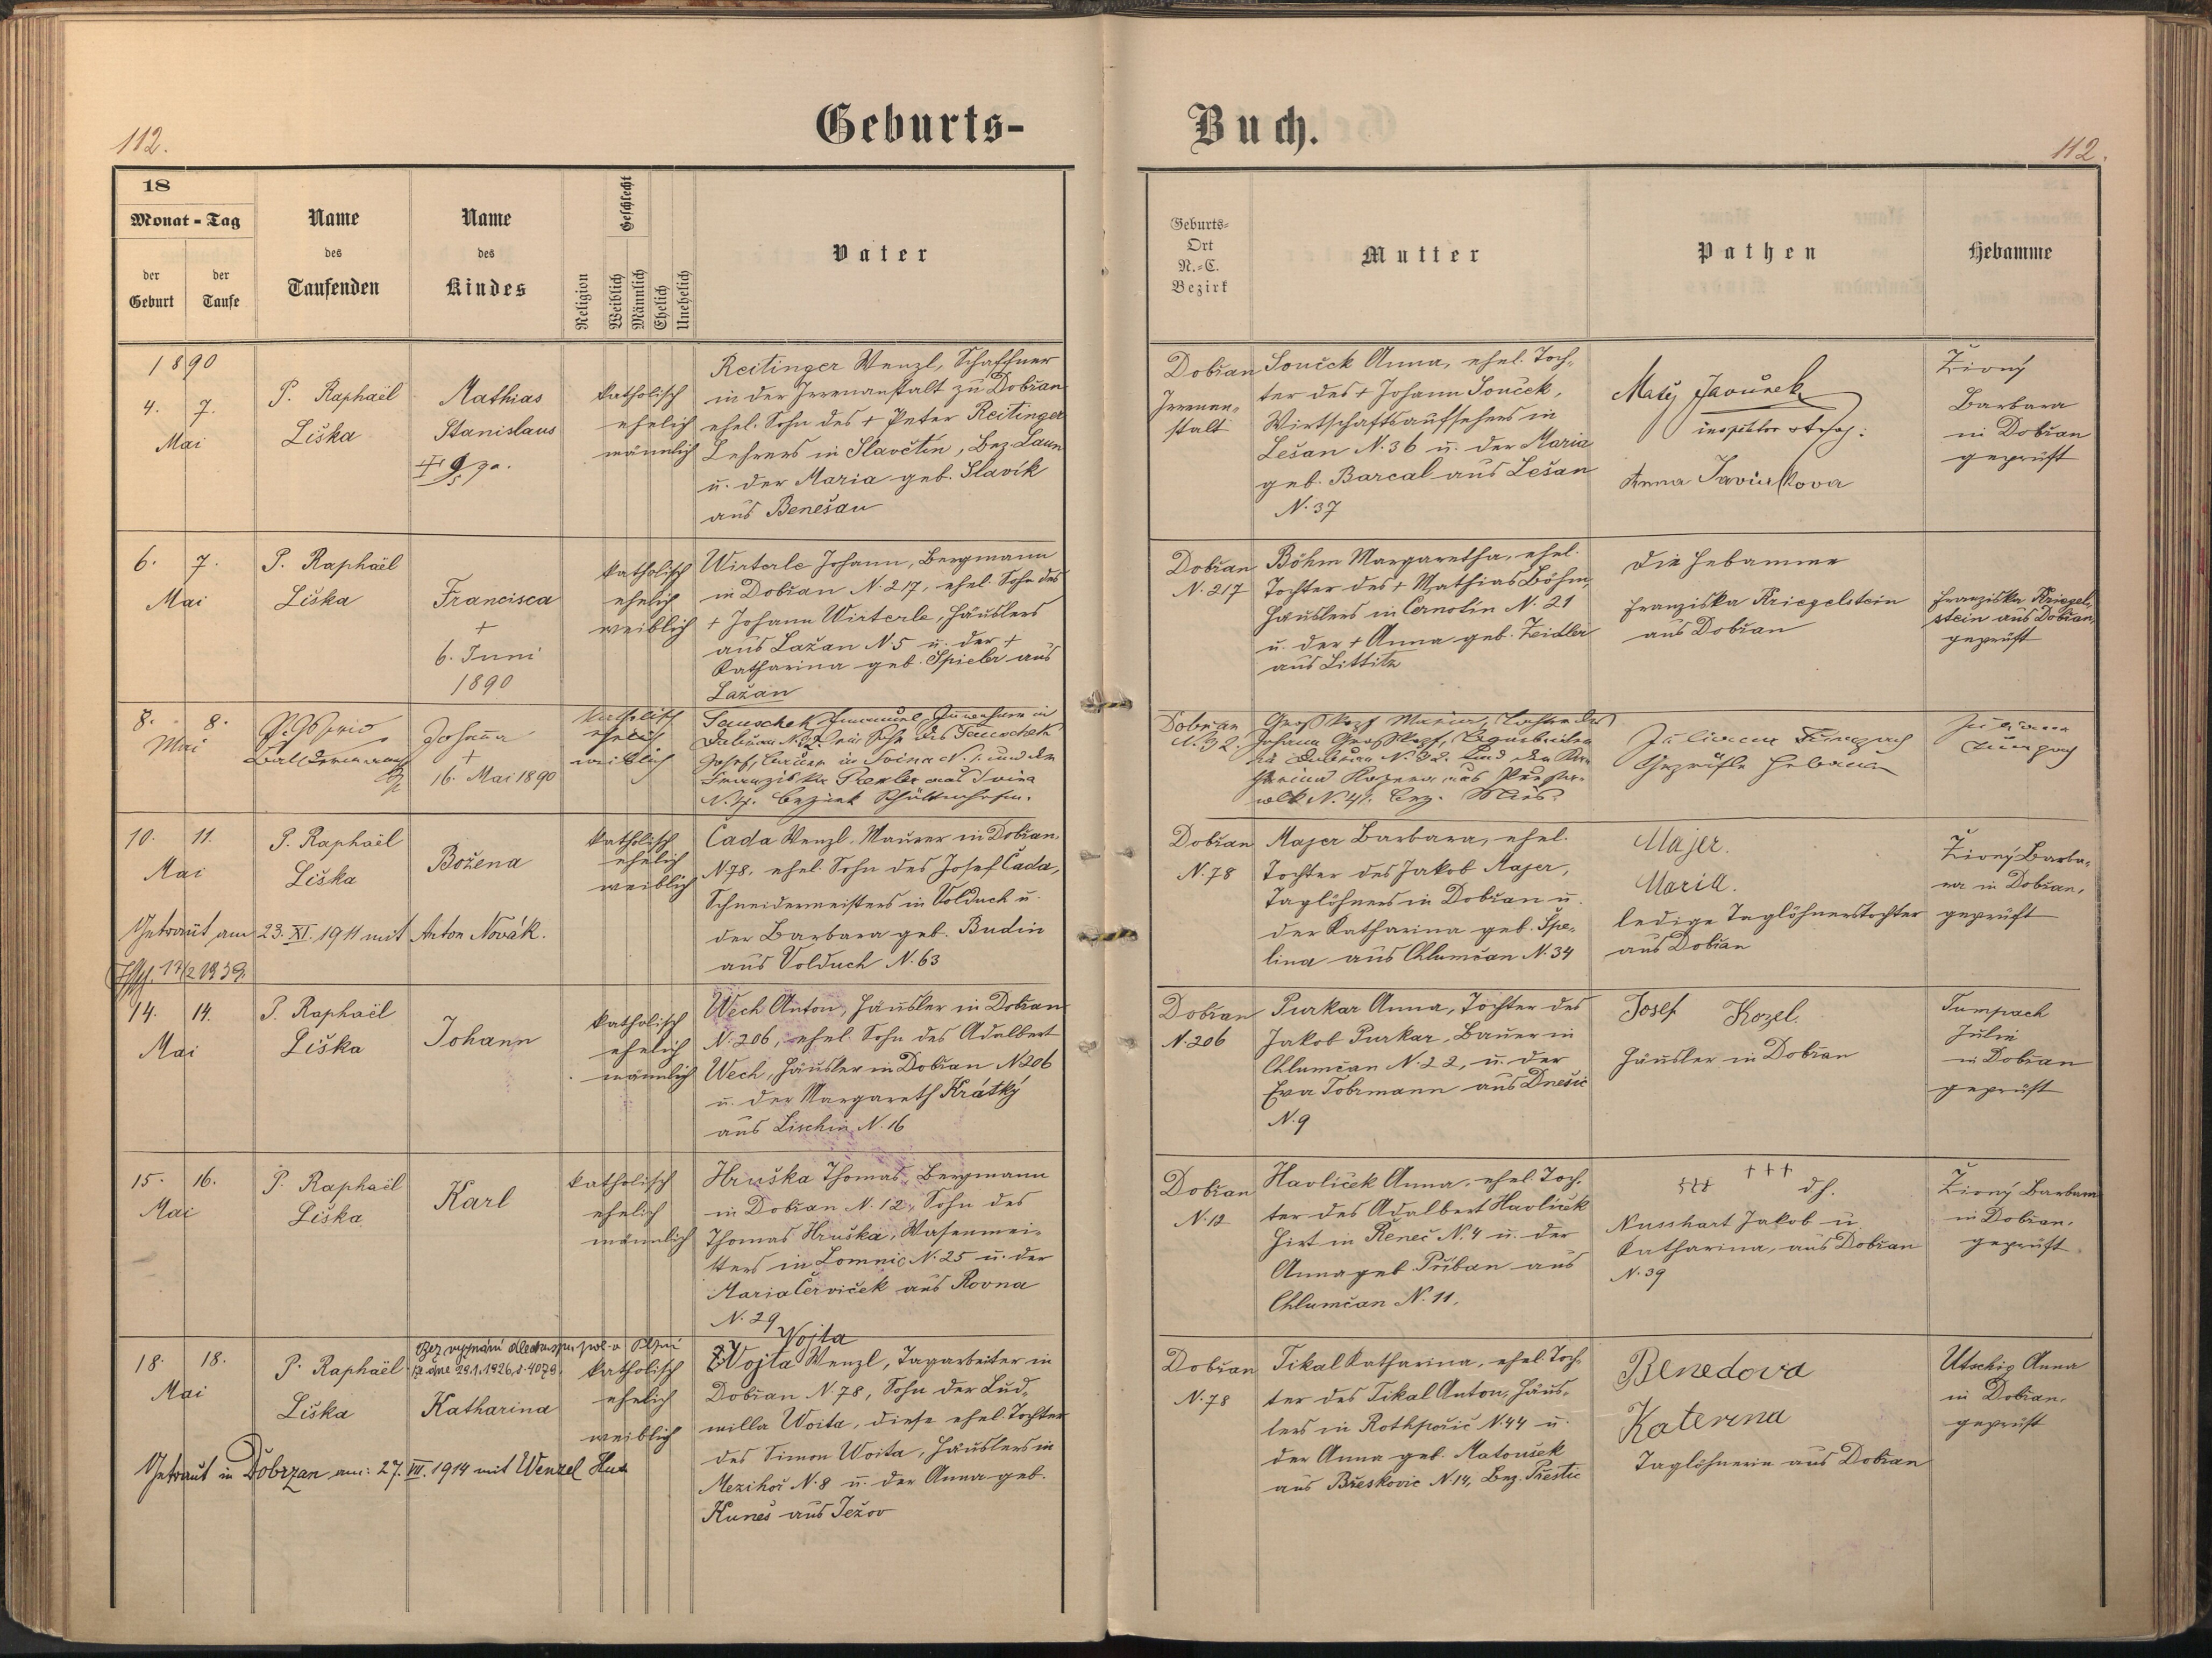 Geburts-
Buch.
112.
112.
18
Monat - Tag
der Geburt
der Taufe
Name des Taufenden
Name des Kindes
Religion
Geschlecht
Weiblich
Männlich
Ehelich
Unehelich
Vater
Geburts-
Ort
N.-C.
Bezirk
Mutter
Pathen
Hebamme
1890
4. 7.
Mai
P. Raphaël
Liška
Mathias
Stanislaus
katholisch
ehelich
männlich
Reitinger Wenzl, Schaffner
in der Irrenanstalt zu Dobřan
ehel. Sohn des + Peter Reitinger
Lehrers in Slavětin, Bez. Laun
u. der Maria geb. Slavík
aus Benešau
Dobřan
Irrenan-
stalt
Souček Anna, ehel. Toch-
ter des + Johann Souček,
Wirtschaftsaufsehers in
Lešan N. 36 u. der Maria
geb. Barcal aus Lešan
N. 37
Matěj Javůrek
inspektor
Anna Javůrkova
Živný
Barbara
in Dobřan
geprüft
6. 7.
Mai
P. Raphaël
Liška
Francisca
+
6. Juni
1890
katholisch
ehelich
weiblich
Wirterle Johann, Bergmann
in Dobřan N. 217, ehel. Sohn des
+ Johann Wirterle, Häuslers
aus Lažan N 5 u. der +
Katharina geb. Spieler aus
Lažan
Dobřan
N. 217
Böhm Margaretha, ehel.
Tochter des + Mathias Böhm,
Häuslers in Černotin N. 21
u. der + Anna geb. Zeidler
aus Littitz
Die Hebamme
Franziska Kriegelstein
aus Dobřan
Franziska Kriegel-
stein aus Dobřan,
geprüft
8. 8.
Mai
Johanna
+
16. Mai 1890
katholisch
ehelich
weiblich
Tauschek Emanuel, Inwohner in
Sohn des Tauschek
Josef, in Svina N. 1. und der
Franziska aus Svina
N. Bezirk Schüttenhofen.
Dobřan
N. 32.
Großkopf Maria, Tochter des
Johann Großkopf,
N. 32. und der
aus
N. 41. Bez. Mies.
Juliana Tumpach
Geprüfte Hebamme
Juliana
Tumpach
10. 11.
Mai
P. Raphaël
Liška
Božena
katholisch
ehelich
weiblich
Čada Wenzl, Maurer in Dobřan,
N. 78, ehel. Sohn des Josef Čada,
Schneidermeisters in Volduch u.
der Barbara geb. Budin
aus Volduch N. 63
Dobřan
N. 78
Majer Barbara, ehel.
Tochter des Jakob Majer,
Taglöhners in Dobřan u.
der Katharina geb. Špe-
lina aus Chlumčan N. 34
Majer.
Maria.
ledige Taglöhnerstochter
aus Dobřan
Živný Barba-
ra in Dobřan,
geprüft
Getraut am 23. XI. 1911 mit Anton Novák.
14. 14.
Mai
P. Raphaël
Liška
Johann
katholisch
ehelich
männlich
Wech Anton, Häusler in Dobřan
N. 206, ehel. Sohn des Adalbert
Wech, Häusler in Dobřan N 206
u. der Margareth Krátký
aus Lischin N. 16
Dobřan
N. 206
Purkar Anna, Tochter des
Jakob Purkar, Bauer in
Chlumčan N. 22, u. der
Eva Tobrmann aus Dnešic
N. 9
Josef Kozel.
Häusler in Dobřan
Tumpach
Julie
in Dobřan
geprüft
15. 16.
Mai
P. Raphaël
Liška
Karl
katholisch
ehelich
männlich
Hruška Thomas, Bergmann
in Dobřan N. 12, Sohn des
Thomas Hruška, Wasenmei-
sters in Lomnic N. 25 u. der
Maria Červíček aus Rovna
N. 29
Dobřan
N. 12
Havlíček Anna, ehel. Toch-
ter des Adalbert Havlíček
Hirt in Řeneč N. 4 u. der
Anna geb. Přiban aus
Chlumčan N. 11.
+++ +++
Nusshart Jakob u.
Katharina, aus Dobřan
N. 39
Živný Barbara
in Dobřan,
geprüft
18. 18.
Mai
P. Raphaël
Liška
Katharina
katholisch
ehelich
weiblich
Vojta
Wojta Wenzl, Tagarbeiter in
Dobřan N. 78, Sohn der Lud-
milla Woita, diese ehel. Tochter
des Simon Woita, Häuslers in
Mezihoř N. 8 u. der Anna geb.
Kuneš aus Ježov
Dobřan
N. 78
Tikal Katharina, ehel. Toch-
ter des Tikal Anton, Häus-
lers in Rothpořič N. 44 u.
der Anna geb. Matoušek
aus Břeskovic N 14, Bez. Přestic
Benedova
Katerina
Taglöhnerin aus Dobřan
Utschig Anna
in Dobřan,
geprüft
Getraut in Dobrzan am: 27. VII. 1914 mit Wenzel